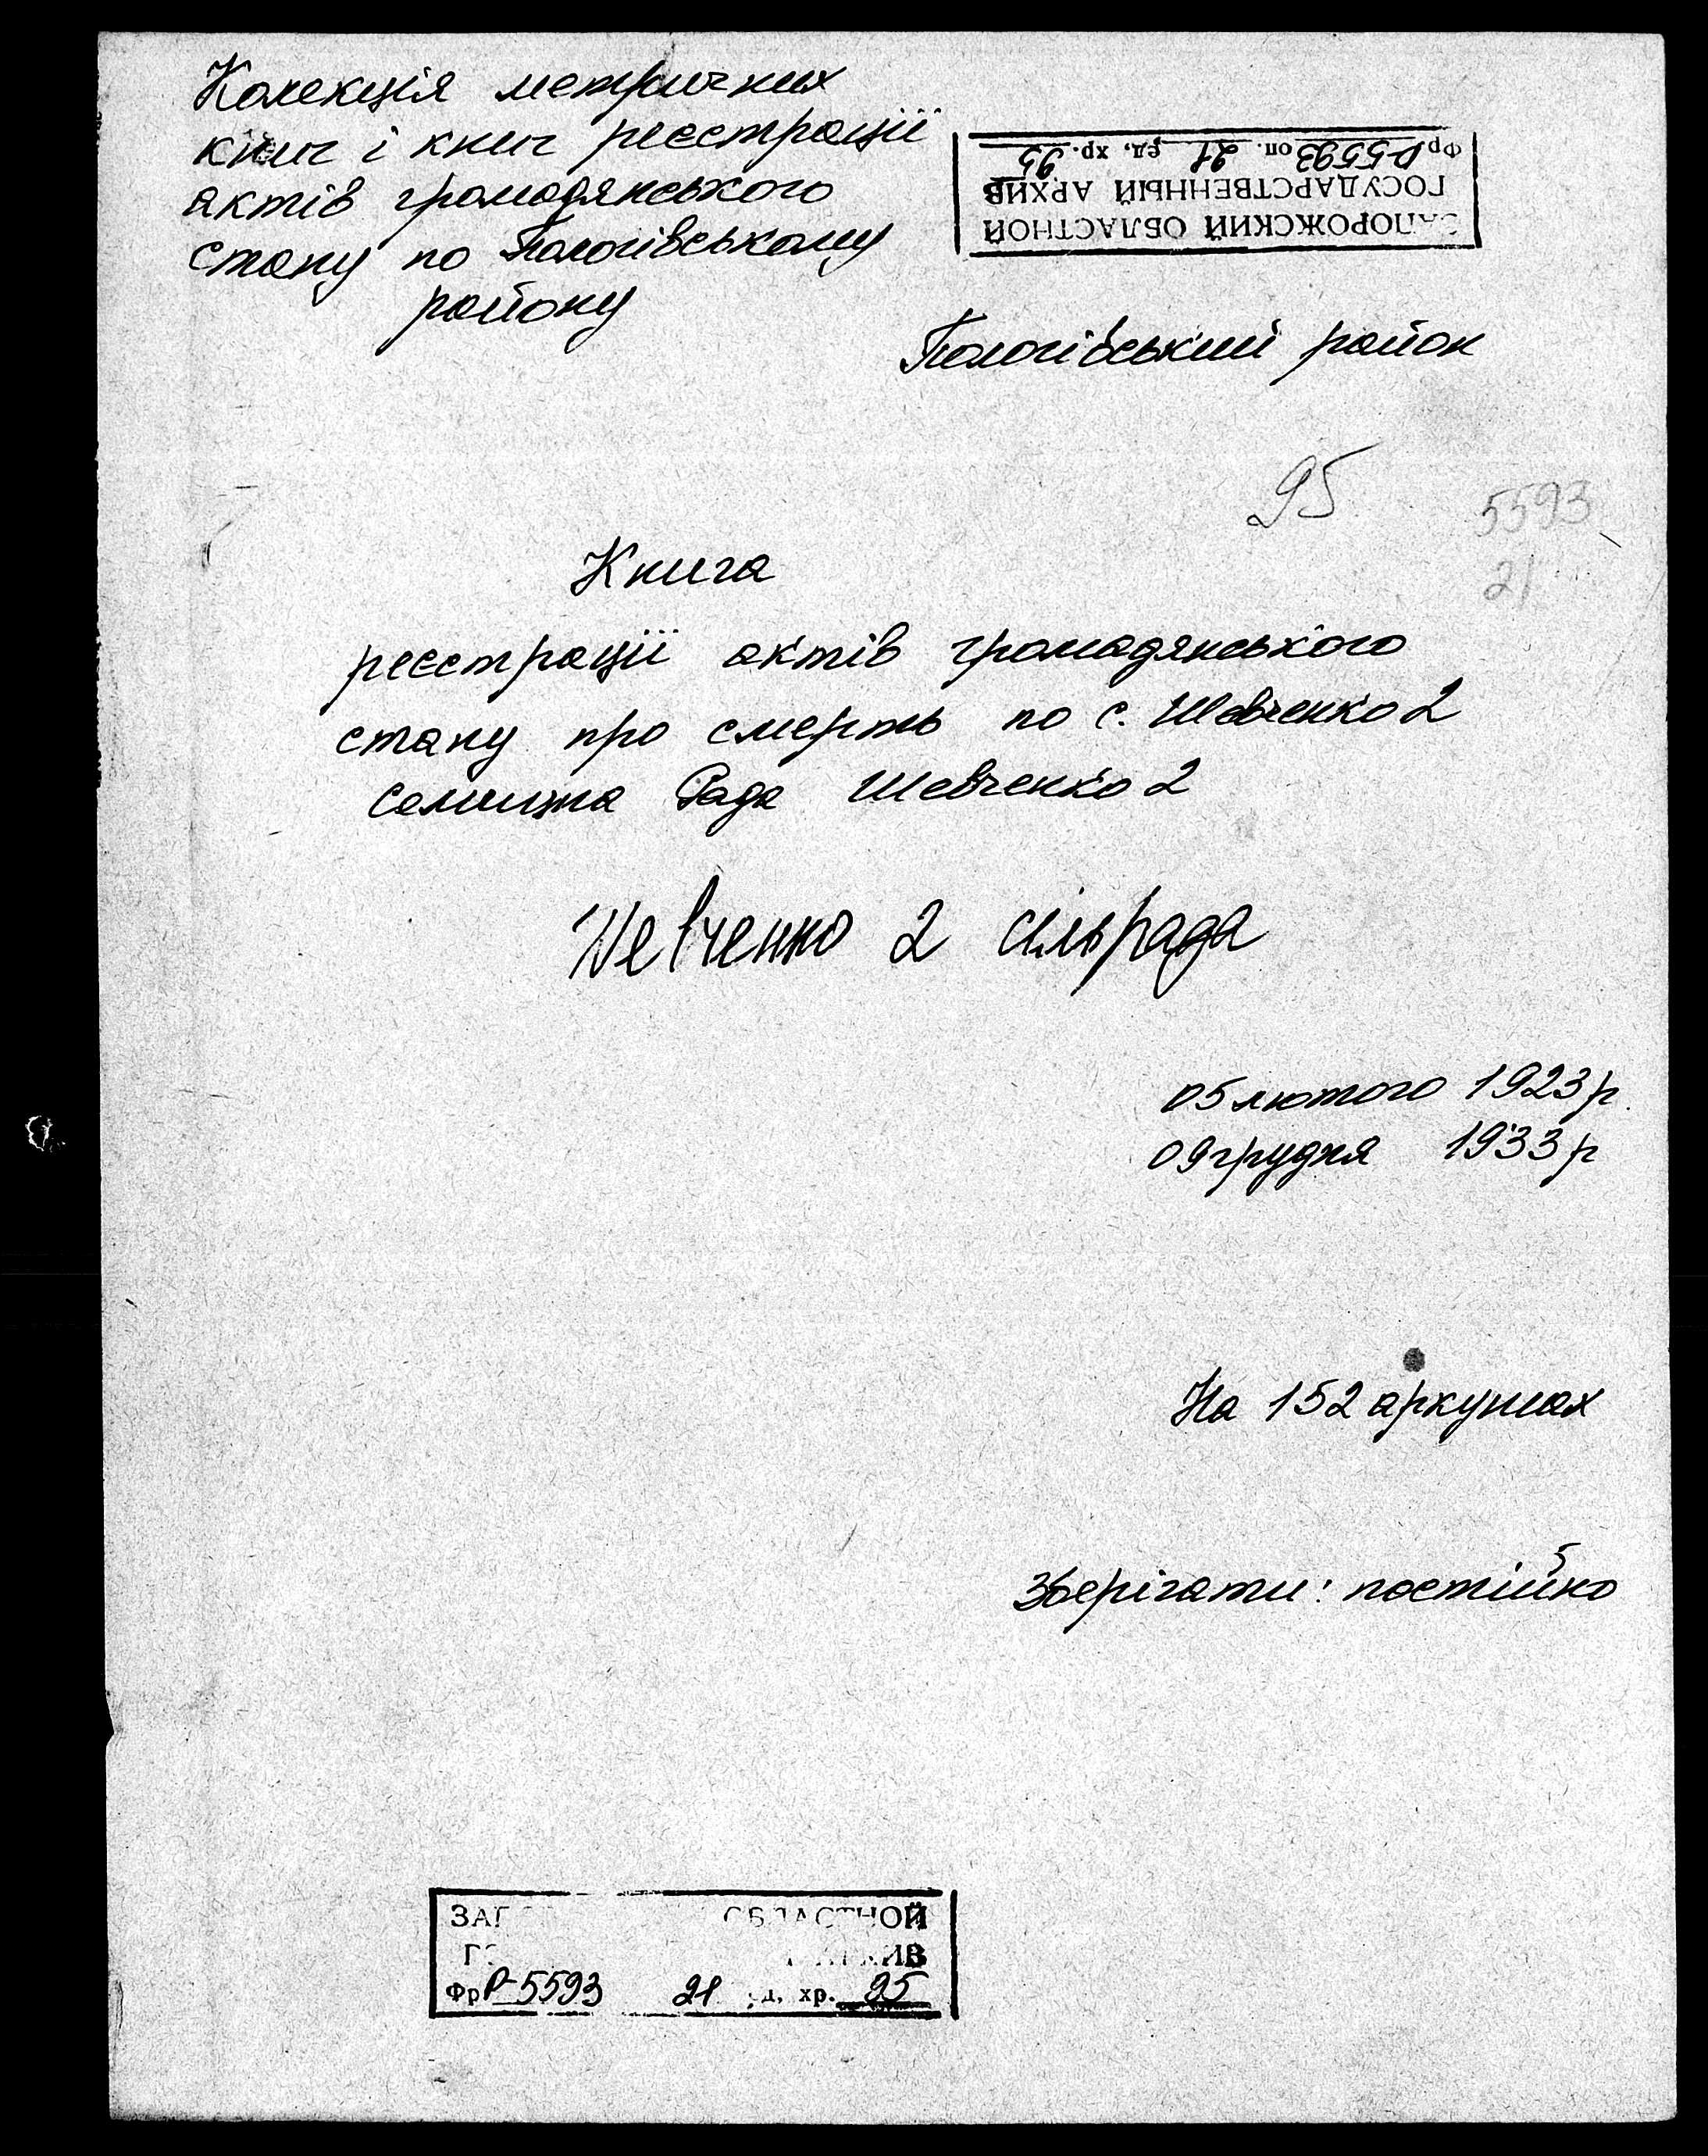 Колекція метричних
книг і книг реєстрації
актів громадянського
стану по Пологівському
району
ЗАПОРОЖСКИЙ ОБЛАСТНОЙ
ГОСУДАРСТВЕННЫЙ АРХИВ
Фр Р-5593 оп. 21 ед. хр. 95
Пологівський район
95
5593
21
Книга
реєстрації актів громадянського
стану про смерть по с. Шевченко 2
Рада Шевченко 2
Шевченко 2 сільрада
05 лютого 1923 р.
09 грудня 1933 р
На 152 аркушах
Зберігати: постійно
ЗАП ОБЛАСТНОЙ
ГО АРХИВ
Фр Р-5593 21 ед. хр. 95